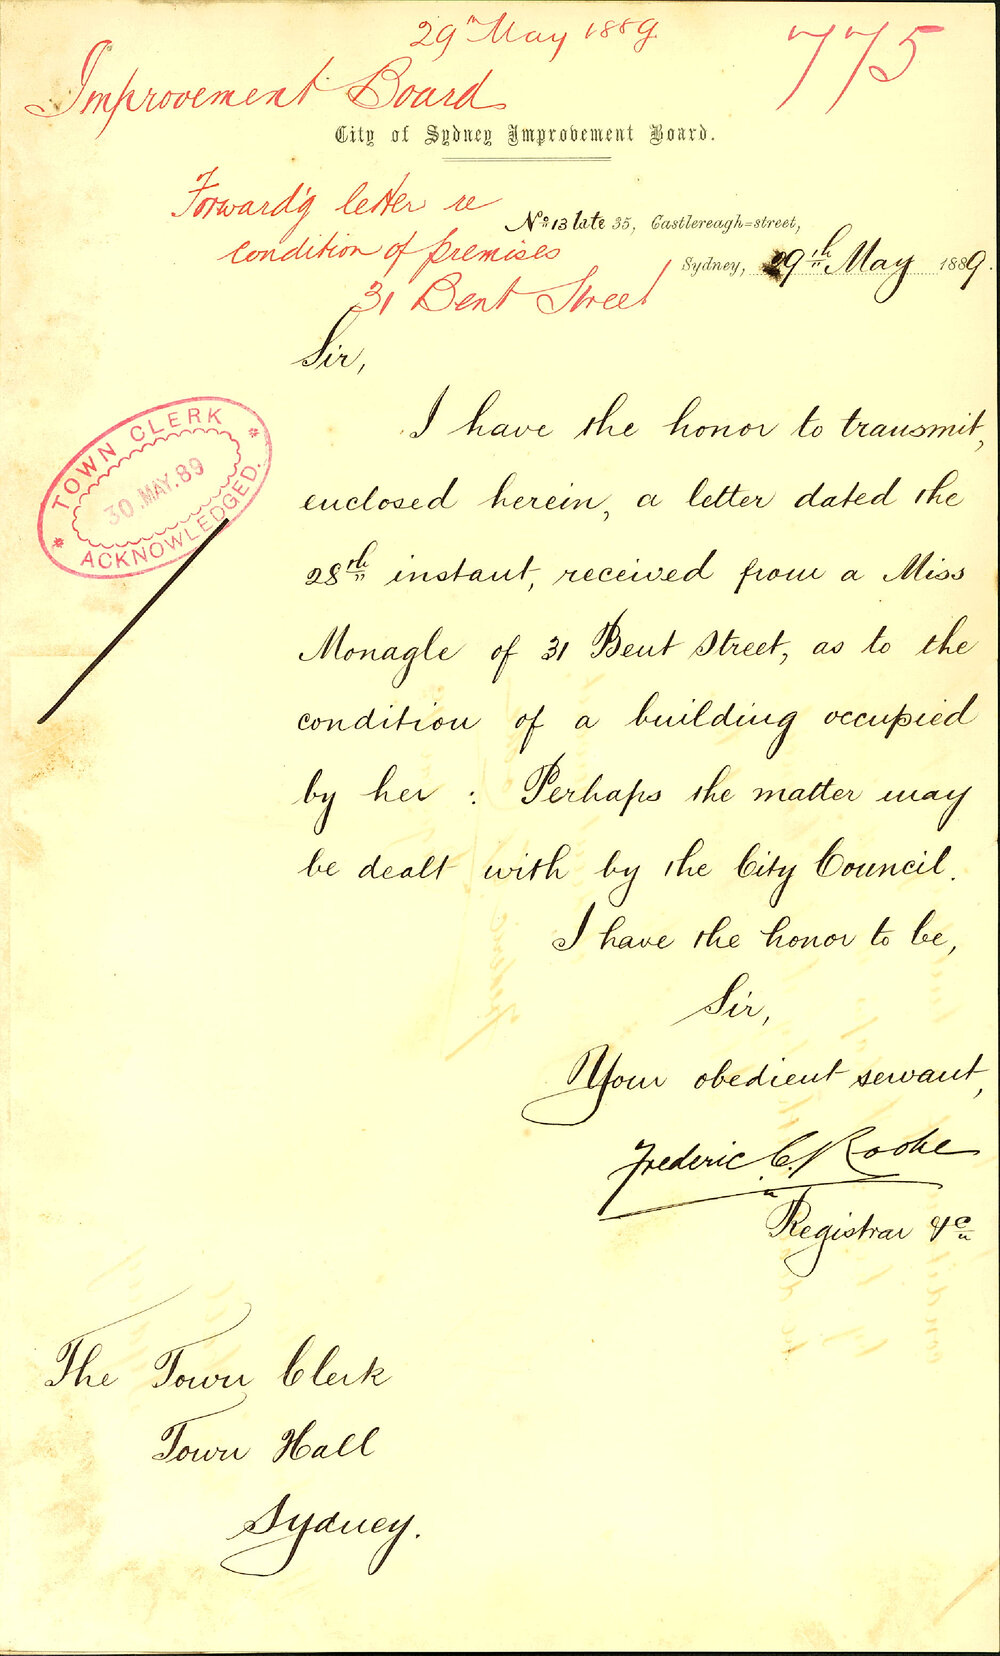 29th May 1889
775
Improvement Board
City of Sydney Improvement Board.
Forward'g letter re
condition of premises
31 Bent Street
No 13 late 35, Castlereagh=street,
Sydney, 29th May 1889.
TOWN CLERK
30.MAY.89
ACKNOWLEDGED.
Sir,
I have the honor to transmit,
enclosed herein, a letter dated the
28th instant, received from a Miss
Monagle of 31 Bent Street, as to the
condition of a building occupied
by her : Perhaps the matter may
be dealt with by the City Council.
I have the honor to be,
Sir,
Your obedient servant,
Frederic C. Rooke
Registrar &c
The Town Clerk
Town Hall
Sydney.